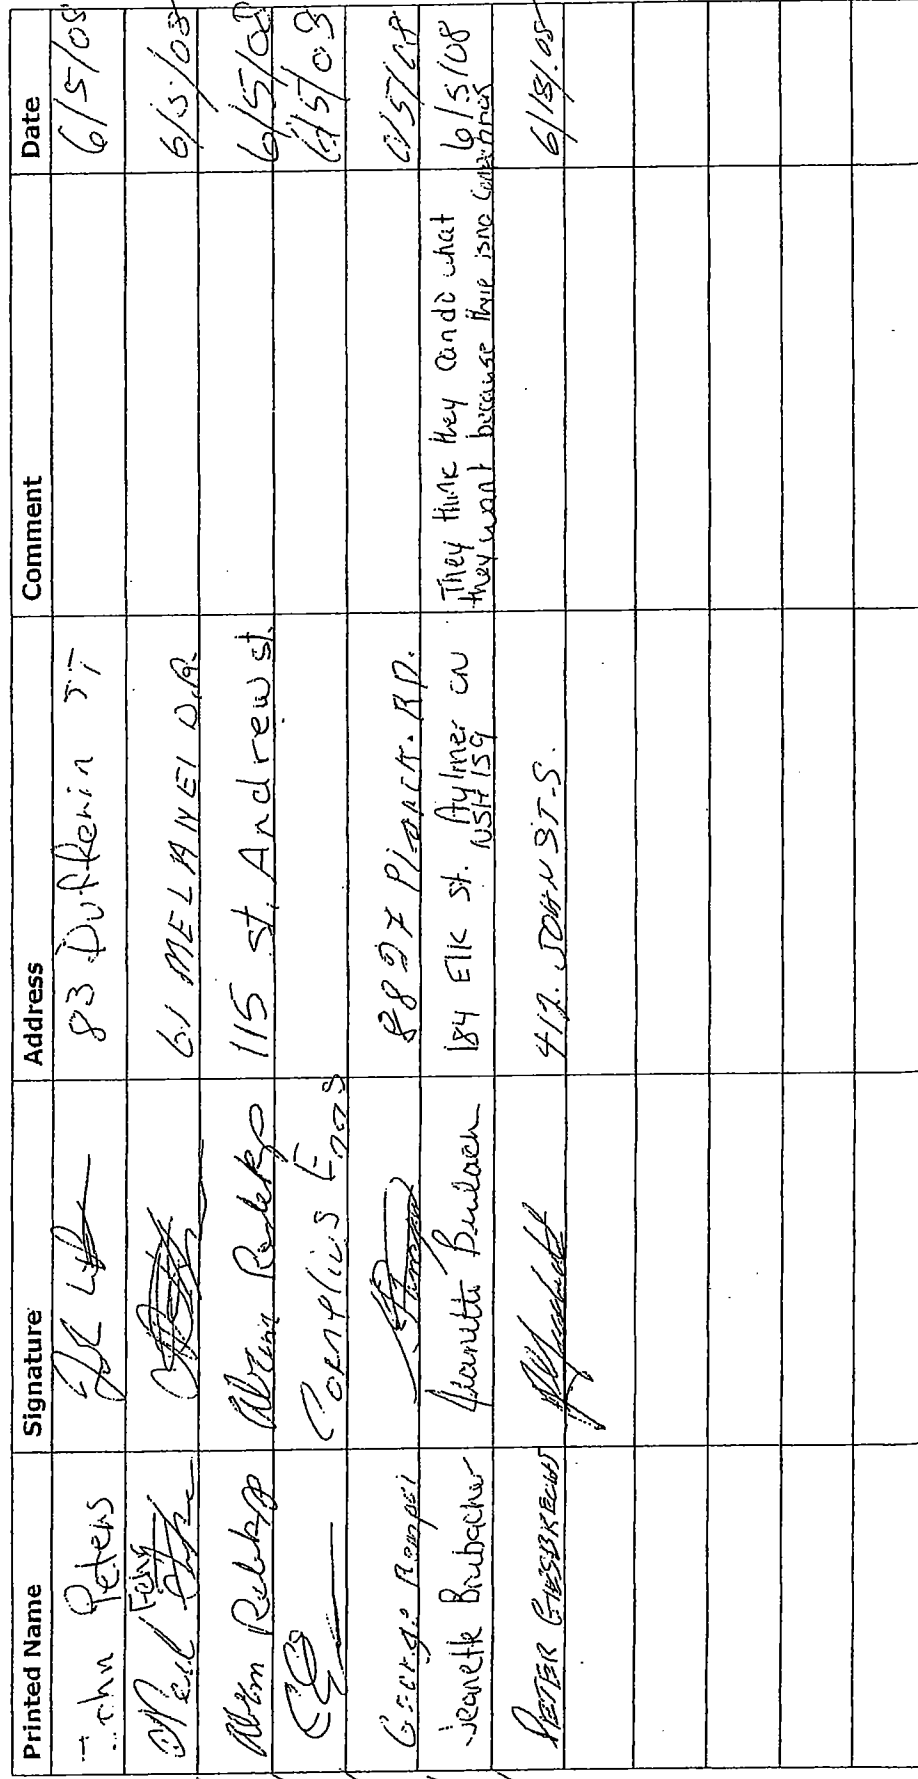 Printed Name Signature Address Comment Date
John Peters 83 Dufferin ST 6/5/08
Neil 61 MELANEI D.R. 6/5/08
Abram Redekop Abram Redekop 115 st. Andrew st. 6/5/08
CE Cornelius Enns 6/5/08
George Rempel 8827 Plank. RD. 6/5/08
Jeanette Brubacher Jeanette Brubach 184 Elk st. Aylmer ON They think they can do what 6/5/08
N5H 1S9 they want because there is no
PIETER GIESBRECHT 412. JOHN ST-S. 6/5/08